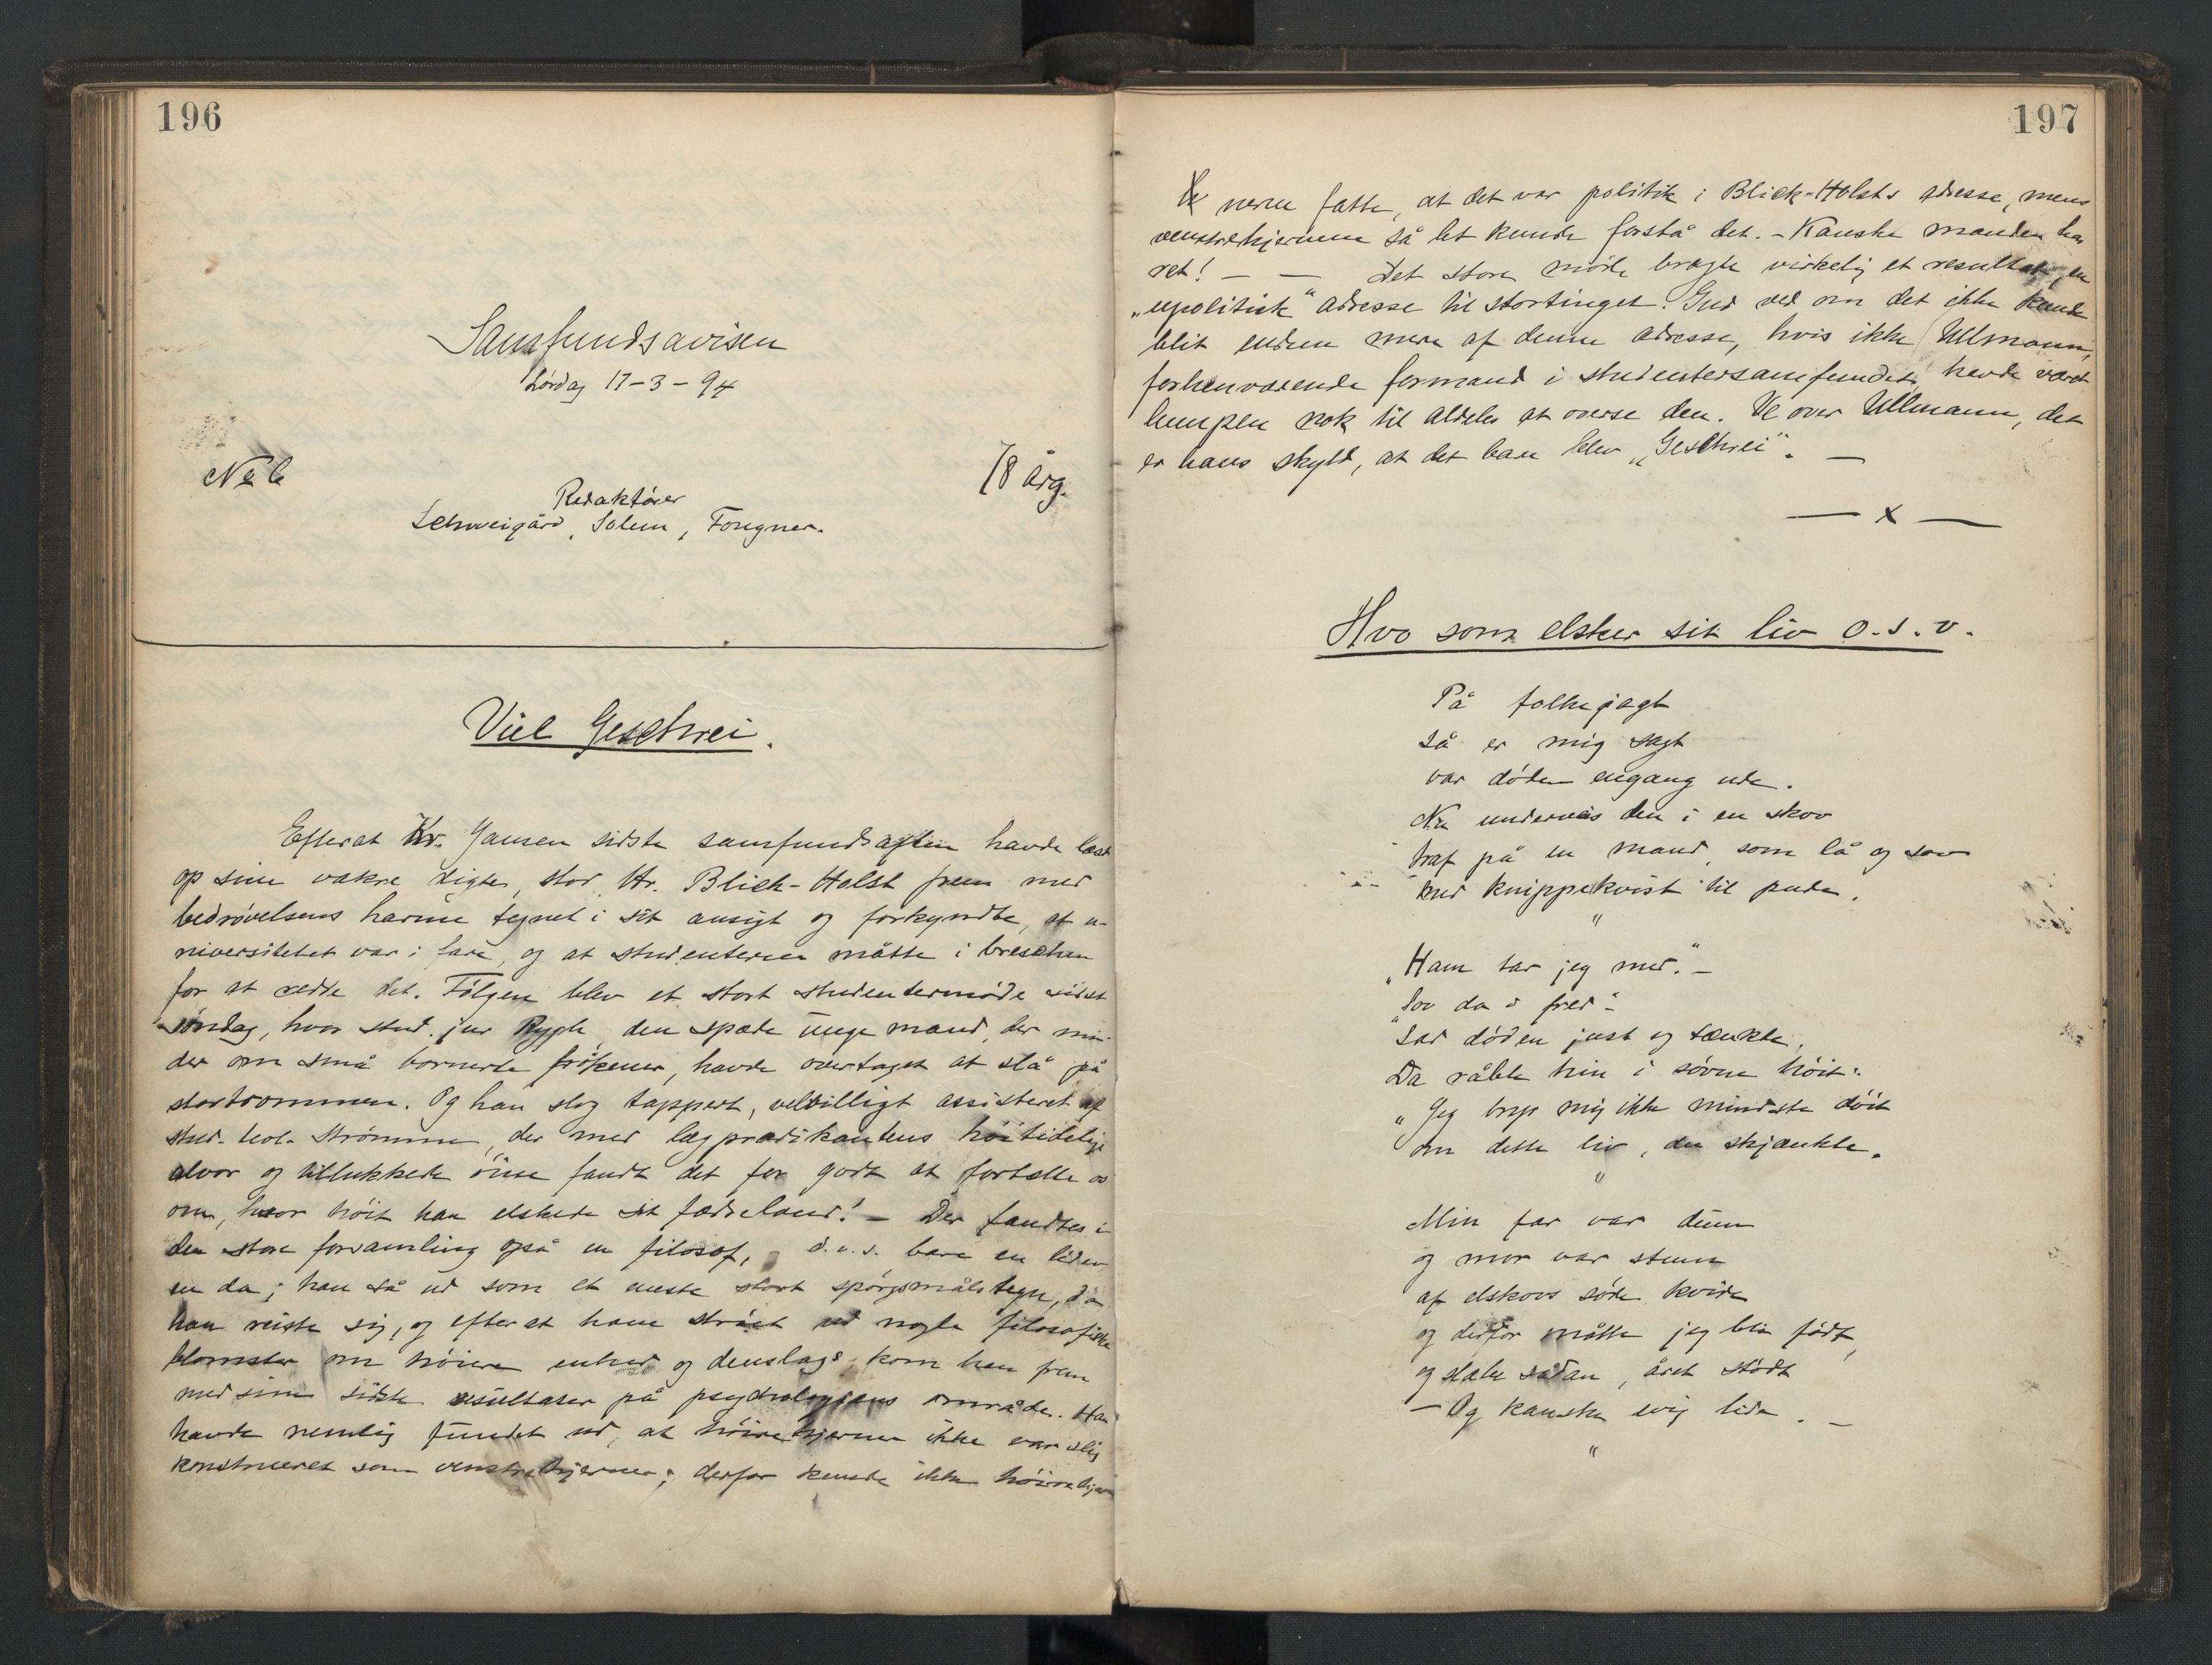 196
Samfundsavisen
Lørdag 17-3-94
No 6
78 årg.
Redaktører
Schweigård, Solem, Fougner.
Viel Geschrei.
Efterat Kr. Jansen sidste samfundsaften havde læst
op sine vakre digte, stod Hr. Blick-Holst frem med
bedrøvelsens harme tegnet i sit ansigt og forkyndte, at u-
niversitetet var i fare, og at studenterne måtte i breschen
for at redde det. Følgen blev et stort studentermøde sidst
søndag, hvor stud. jur Rygh, den spæde unge mand, der min-
der om små bornerte frøkener, havde overtaget at slå på
stortrommen. Og han slog tappert, velvilligt assisteret af
stud. teol. Strømme, der med lægprædikantens høitidelige
alvor og tillukkede øine fandt det for godt at fortælle os
om, hvor høit han elskede sit fædreland! – Der fandtes i
den store forsamling også en filosof, d.v.s. bare en liden
en da; han så ud som et eneste stort spørgsmålstegn, da
han reiste sig, og efterat have strøet ud nogle filosofiske
blomster om høiere enhed og denslags kom han frem
med sine sidste resultater på psychologiens område. Han
havde nemlig fundet ud, at høirehjerner ikke var slig
konstrueret som venstrehjerner; derfor kunde ikke høirehjer-
197
nerne fatte, at det var politik i Blick-Holsts adresse, mens
venstrehjernene så let kunde forstå det. – Kanske manden har
ret! – – Det store møde bragte virkelig et resultat, en
„upolitisk“ adresse til stortinget. Gud ved om det ikke kunde
blit endnu mere af denne adresse, hvis ikke Ullmann,
forhenværende formand i studentersamfundet, havde været
lumpen nok til aldeles at overse den. Ve over Ullmann, det
er hans skyld, at det bare blev „Geschrei“. –
— x —
Hvo som elsker sit liv o.s.v.
På folkejagt
så er mig sagt
var døden engang ude.
Nu underveis den i en skov
traf på en mand, som lå og sov
med knippekvist til pude.
"
„Ham tar jeg med.“ –
„Sov da i fred“
Sad døden just og tænkte,
Da råbte hin i søvne høit:
„Jeg bryr mig ikke mindste døit
om dette liv, du skjænkte.
"
Min far var dum
og mor var stum
af elskovs søde kvide
og derfor måtte jeg bli født,
og slæbe sådan, året stødt
– Og kanske evig lide. –
"